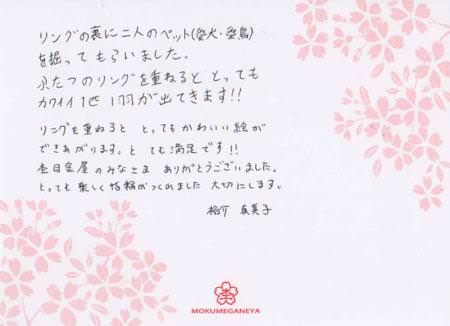 リングの裏に二人のペット(愛犬・愛鳥)
を掘ってもらいました。
ふたつのリングを重ねると とっても
カワイイ1匹 1羽が出てきます!!
リングを重ねると とってもかわいい絵が
できあがります。とても満足です!!
杢目金屋のみなさま ありがとうございました。
とっても楽しく指輪がつくれました 大切にします。
裕介 真美子
MOKUMEGANEYA